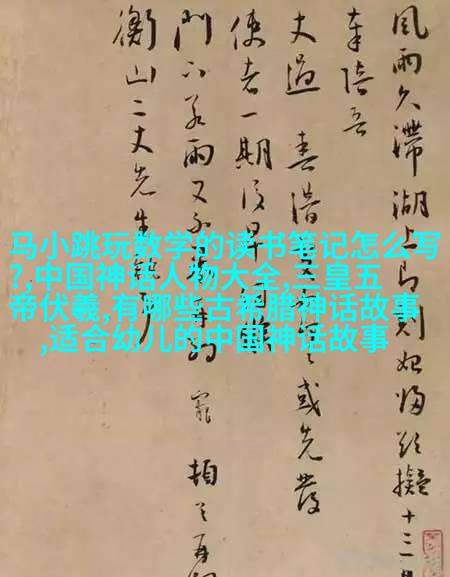 马小跳玩数学的读书笔记怎么写
?,中国神话人物大全,三皇五
帝伏羲,有哪些古希腊神话故事
,适合幼儿的中国神话故事
風雨久滯湖上即刻始歸擬十三
奉陪吾
丈過喜借或先發
使者一期後早
門下若雨又不寵頓
衡山二丈先生